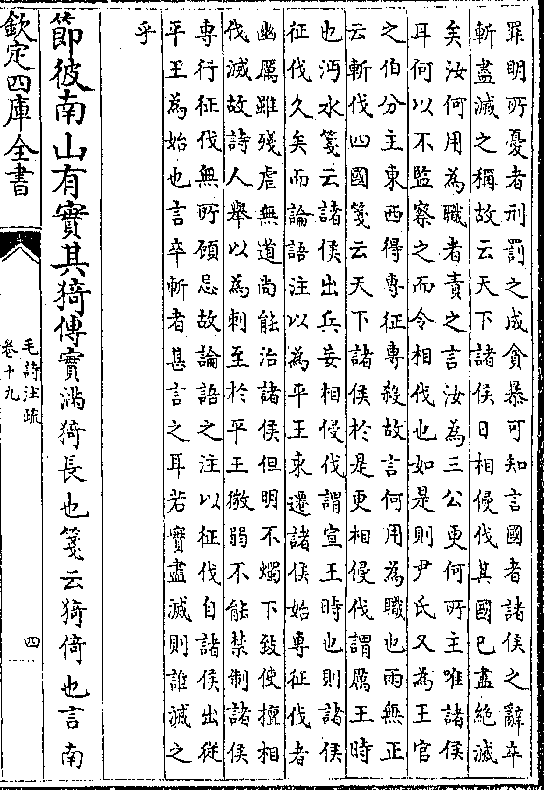 罪明所憂者刑罰之成貪暴可知言國者諸侯之辭卒
斬盡滅之稱故云天下諸侯日相侵伐其國已盡絶滅
矣汝何用為職者責之言汝為三公更何所主唯諸侯
耳何以不監察之而令相伐也如是則尹氏又為王官
之伯分主東西得專征專殺故言何用為職也雨無正
云斬伐四國箋云天下諸侯於是更相侵伐謂厲王時
也沔水箋云諸侯出兵妄相侵伐謂宣王時也則諸侯
征伐久矣而論語注以為平王東遷諸侯始專征伐者
幽厲雖殘虐無道尚能治諸侯但明不燭下致使擅相
伐滅故詩人舉以為刺至於平王微弱不能禁制諸侯
專行征伐無所顧忌故論語之注以征伐自諸侯出從
平王為始也言卒斬者甚言之耳若實盡滅則誰滅之
乎
節彼南山有實其猗傳實滿猗長也箋云猗倚也言南
欽定四庫全書
毛詩注疏
卷十九
四